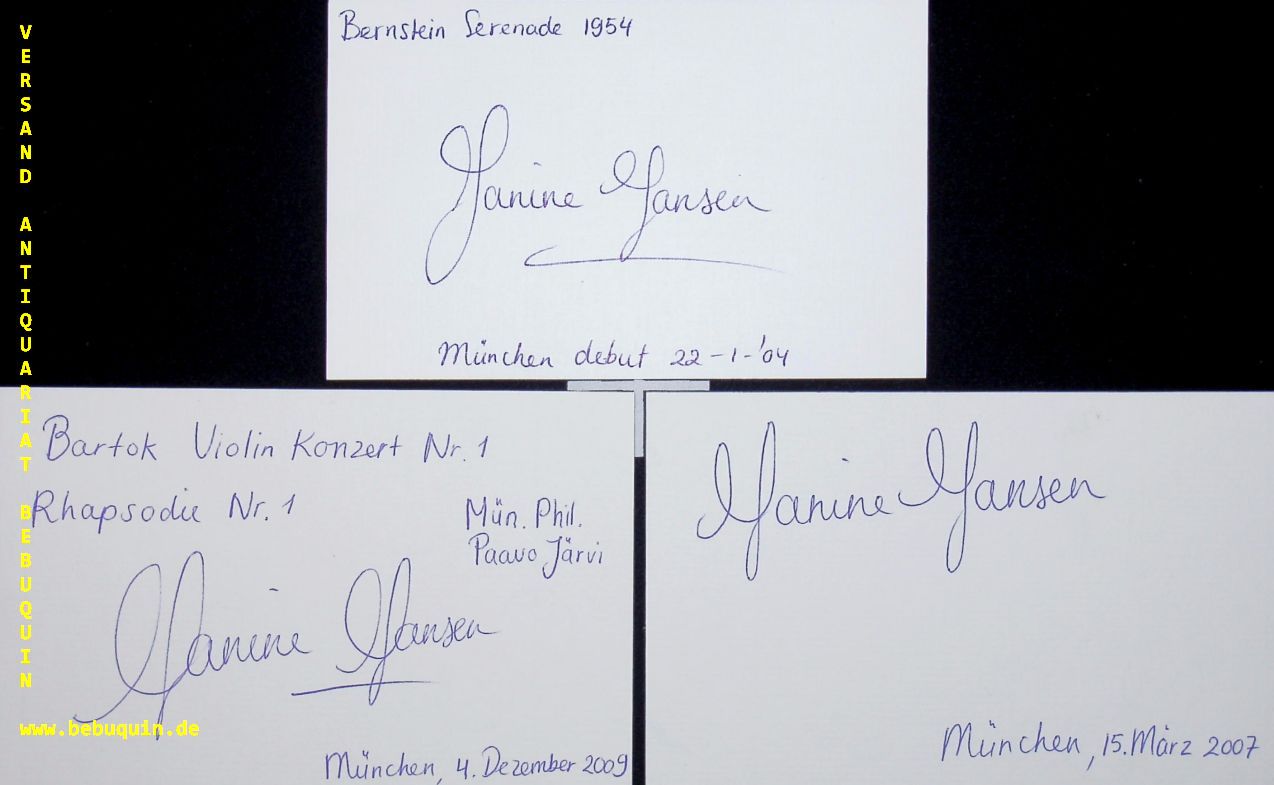 Bernstein Serenade 1954
Janine Jansen
München debut 22-1-'04
Bartok Violin Konzert Nr. 1
Rhapsodie Nr. 1
Mün. Phil.
Paavo Järvi
Janine Jansen
München, 4. Dezember 2009
Janine Jansen
München, 15. März 2007
VERSAND ANTIQUARIAT BEBUQUIN
www.bebuquin.de